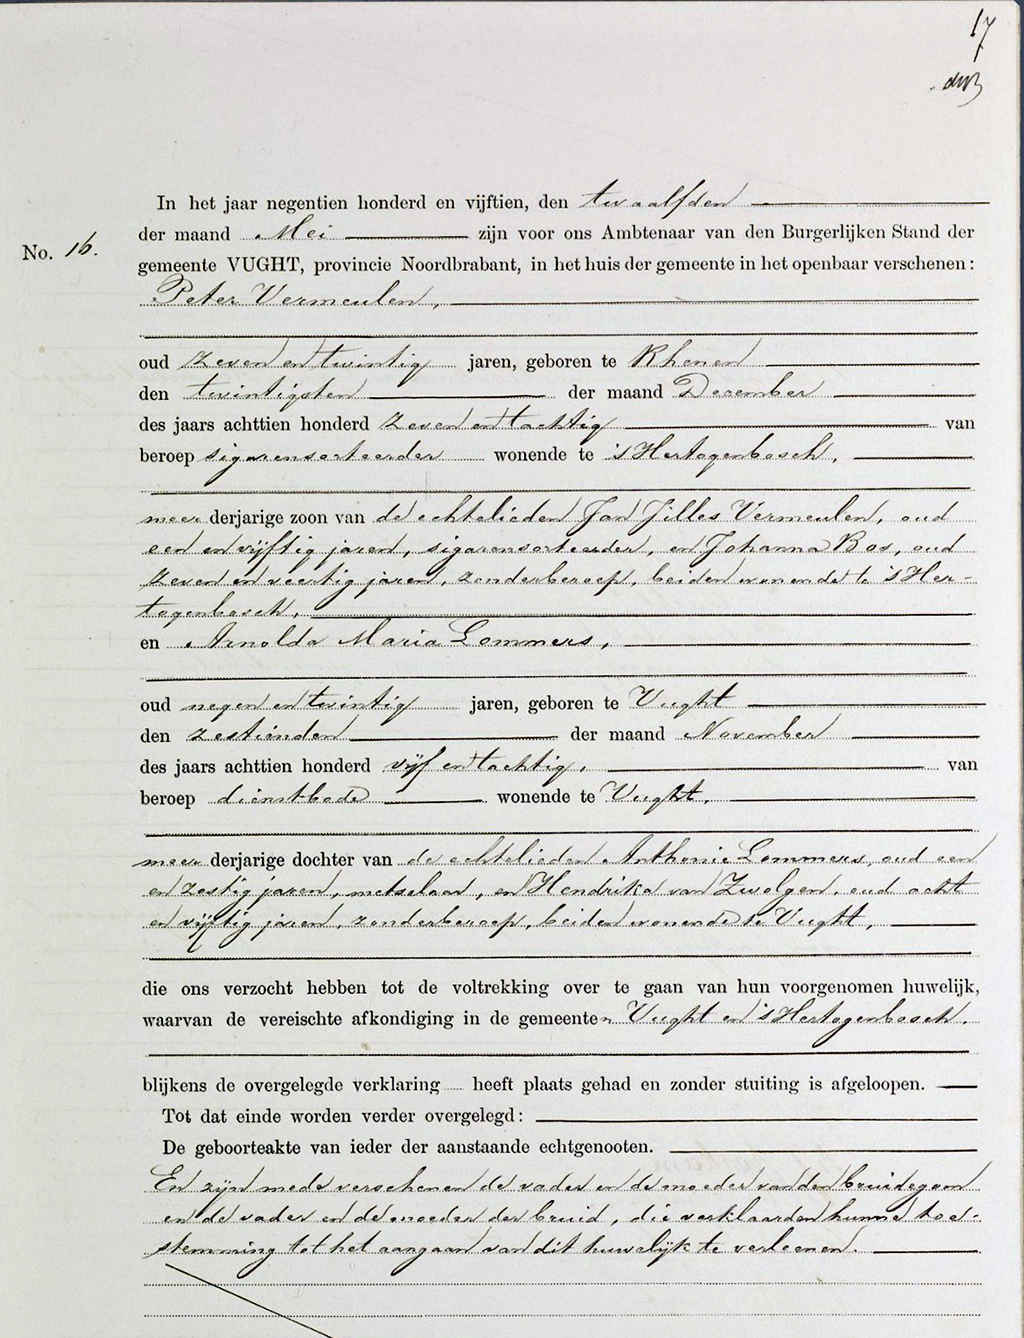 17
In het jaar negentien honderd en vijftien, den twaalfden
der maand Mei zijn voor ons Ambtenaar van den Burgerlijken Stand der
No. 16.
gemeente VUGHT, provincie Noordbrabant, in het huis der gemeente in het openbaar verschenen:
Peter Vermeulen,
oud zeven en twintig jaren, geboren te Rhenen
den twintigsten der maand December
des jaars achttien honderd zeven en tachtig van
beroep sigarensorteerder wonende te 's Hertogenbosch,
meer derjarige zoon van de echtelieden Jan Jilles Vermeulen, oud
een en vijftig jaren, sigarensorteerder, en Johanna Bos, oud
zeven en veertig jaren, zonder beroep, beiden wonende te 's Her-
togenbosch,
en Arnolda Maria Lommers,
oud negen en twintig jaren, geboren te Vught
den zestienden der maand November
des jaars achttien honderd vijf en tachtig, van
beroep dienstbode wonende te Vught,
meer derjarige dochter van de echtelieden Anthonie Lommers, oud een
en zestig jaren, metselaar, en Hendrika van Zwolgen, oud acht
en vijftig jaren, zonder beroep, beiden wonende te Vught,
die ons verzocht hebben tot de voltrekking over te gaan van hun voorgenomen huwelijk,
waarvan de vereischte afkondiging in de gemeenten Vught en 's Hertogenbosch.
blijkens de overgelegde verklaring heeft plaats gehad en zonder stuiting is afgeloopen.
Tot dat einde worden verder overgelegd:
De geboorteakte van ieder der aanstaande echtgenooten.
En zijn mede verschenen de vader en de moeder van den bruidegom
en de vader en de moeder der bruid, die verklaarden hunne toe-
stemming tot het aangaan van dit huwelijk te verleenen.